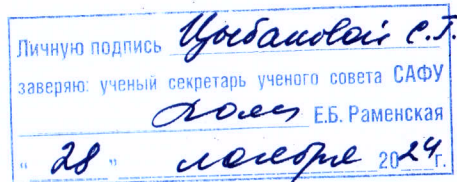 Личную подпись Цыбаковой С.Т.
заверяю: ученый секретарь ученого совета САФУ
Е.Б. Раменская
" 28 " ноября 2024 г.